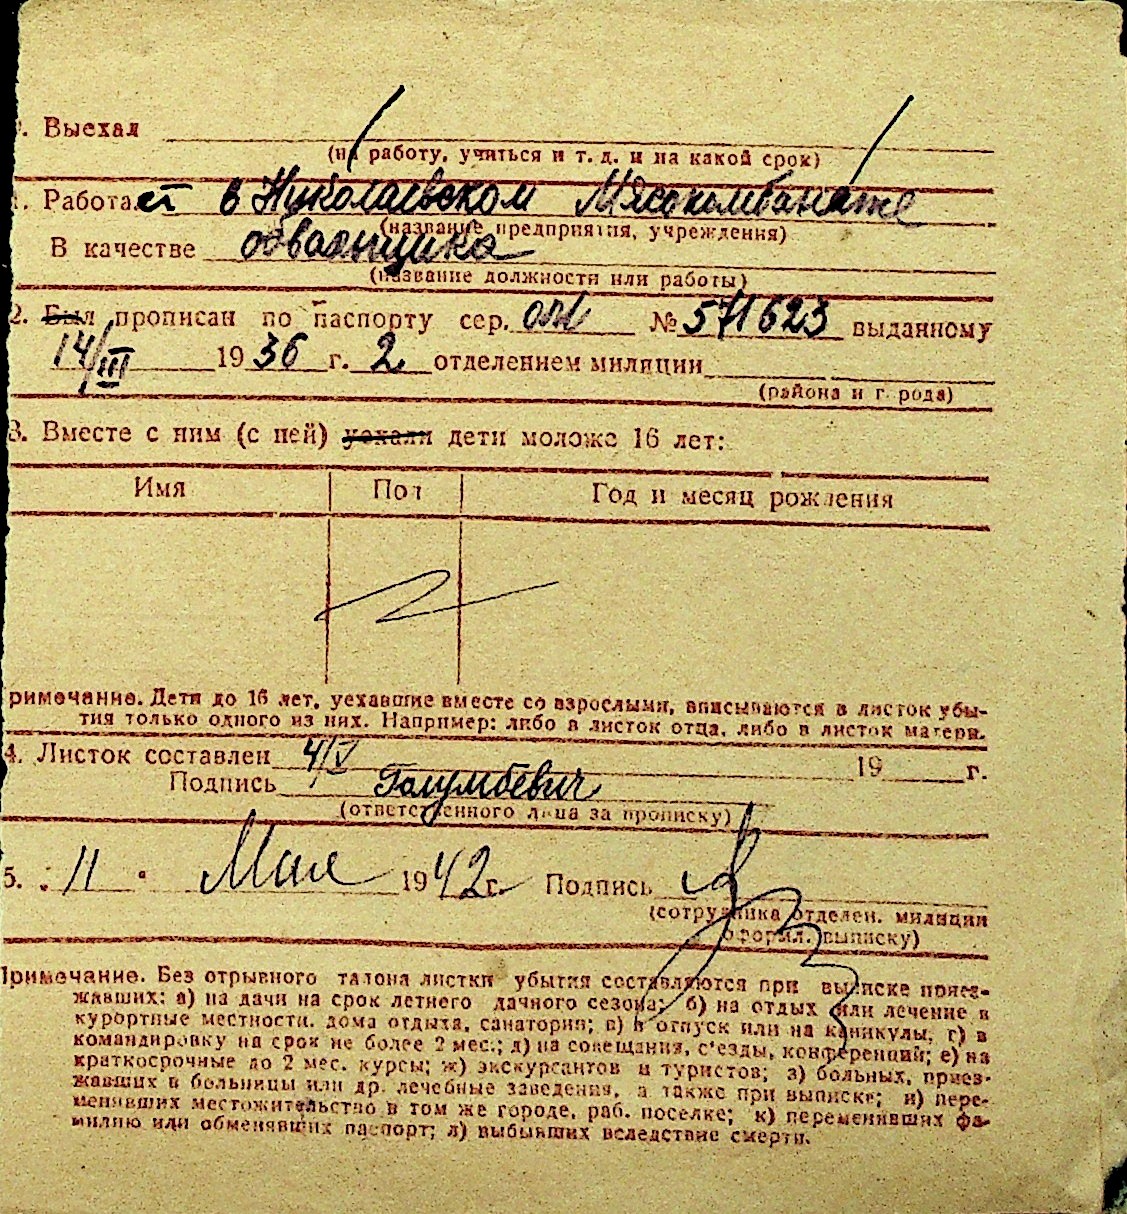 . Выехал
(на работу, учиться и т. д. и на какой срок)
1. Работает в Николаевском Мясокомбинате
(название предприятия, учреждения)
В качестве обвальщика
(название должности или работы)
2. Был прописан по паспорту сер. № 571623 выданному
14/III 1936 г. 2 отделением милиции
(района и города)
3. Вместе с ним (с ней) уехали дети моложе 16 лет:
Имя Пол Год и месяц рождения
римечание. Дети до 16 лет, уехавшие вместе со взрослыми, вписываются в листок убы-
тия только одного из них. Например: либо в листок отца, либо в листок матери.
4. Листок составлен 4/V 19 г.
Подпись Голумбевич
(ответственного лица за прописку)
5. 11 " Мая 1942 г. Подпись
(сотрудника отделен. милиции
оформ. выписку)
Примечание. Без отрывного талона листки убытия составляются при выписке приез-
жавших: а) на дачи на срок летнего дачного сезона; б) на отдых или лечение в
курортные местности, дома отдыха, санатории; в) в отпуск или на каникулы, г) в
командировку на срок не более 2 мес.; д) на совещания, с'езды, конференции; е) на
краткосрочные до 2 мес. курсы; ж) экскурсантов и туристов; з) больных, приез-
жавших в больницы или др. лечебные заведения, а также при выписке; и) пере-
менивших местожительство в том же городе, раб. поселке; к) переменивших фа-
милию или обменявших паспорт; л) выбывших вследствие смерти.